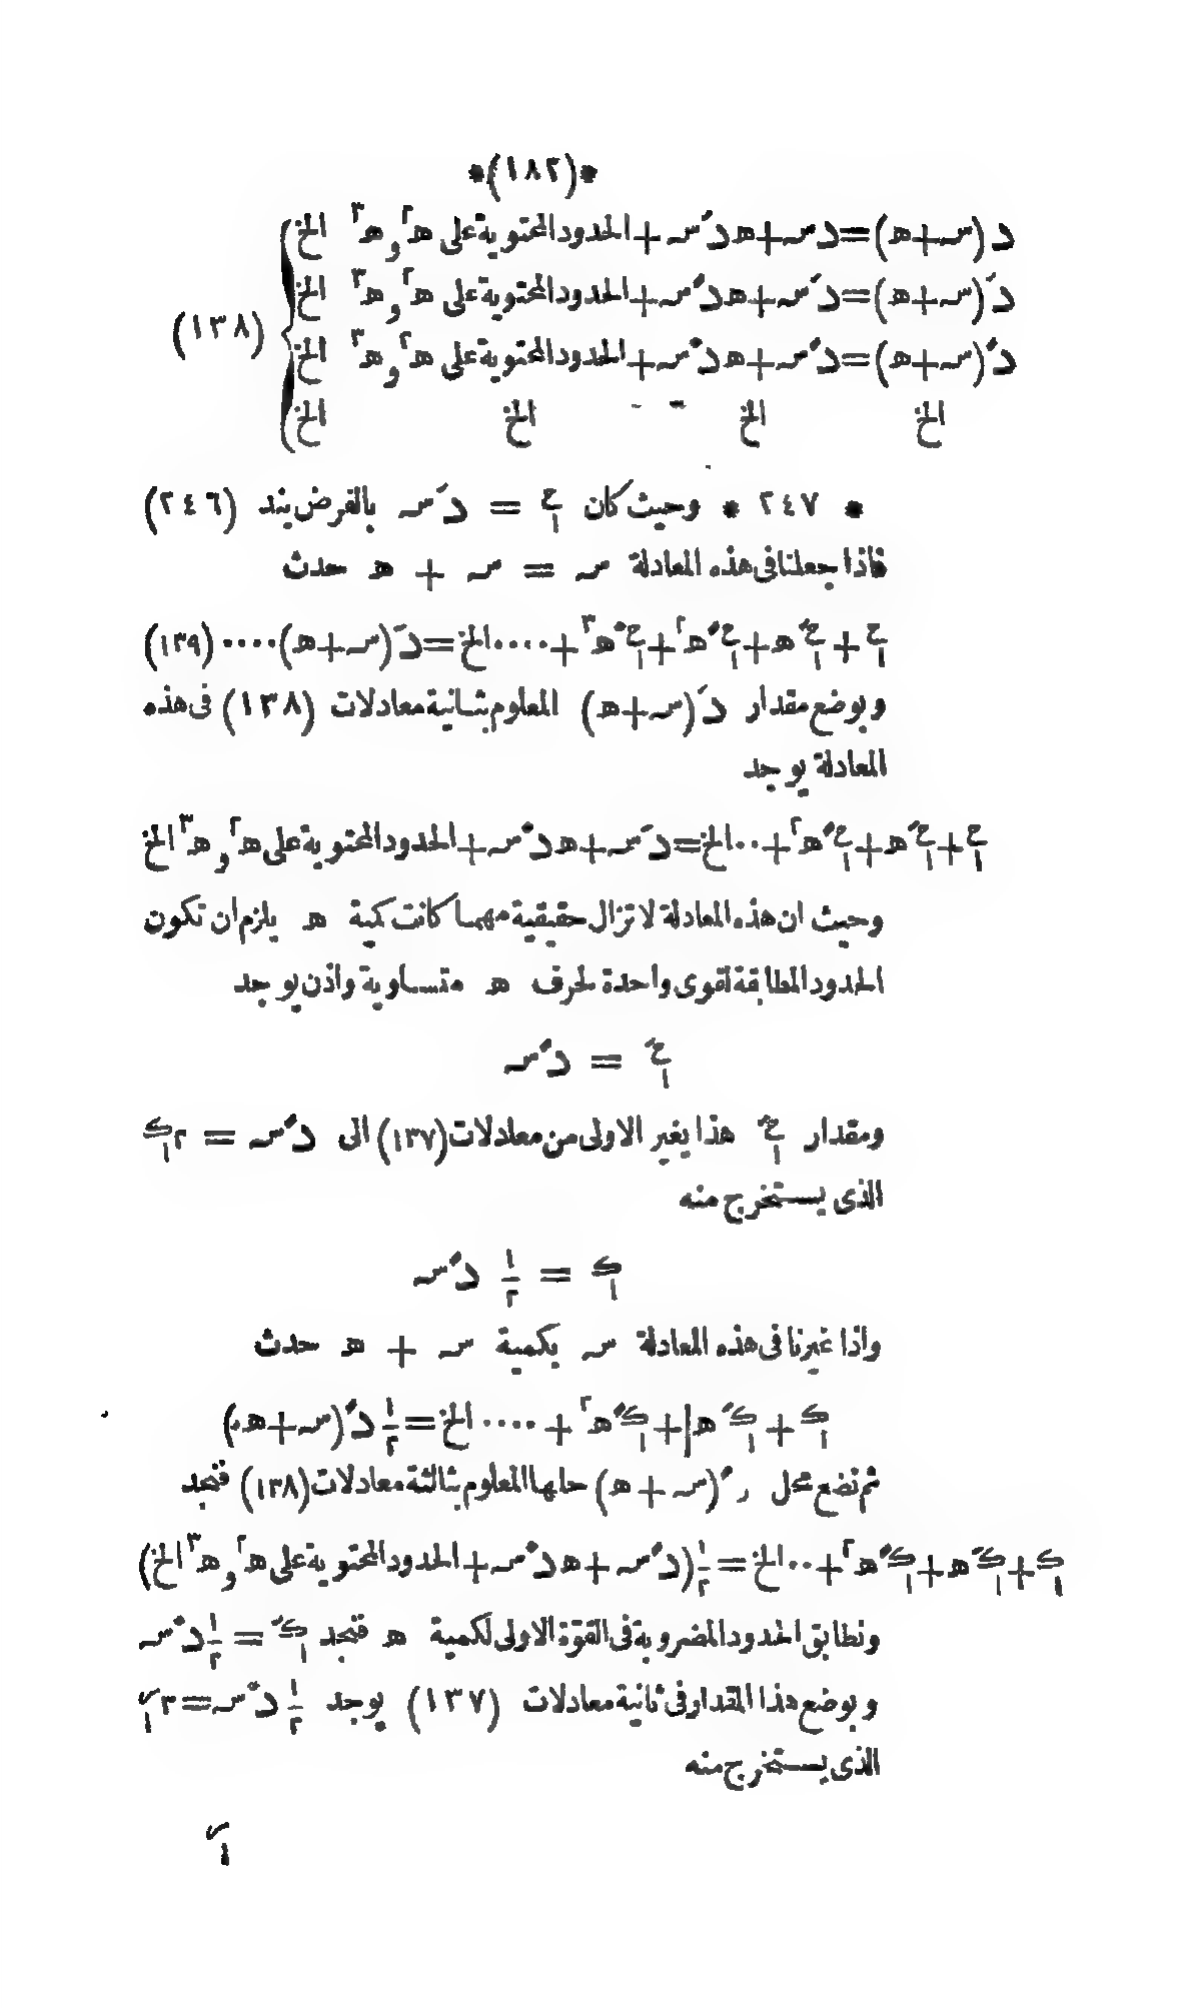 *(١٨٢)*
د (س+ھ)=دس+ھ دَس+الحدود المحتوية على ھ٢ و ھ٣ الخ
دَ (س+ھ)=دَس+ھ دً س+الحدود المحتوية على ھ٢ و ھ٣ الخ
(١٣٨)
دً (س+ھ)=دً س+ھ دٌ س+الحدود المحتوية على ھ٢ و ھ٣ الخ
الخ الخ الخ الخ
* ٢٤٧ * وحيث كان ح/١ = دَ س بالفرض بند (٢٤٦)
فاذا جعلنا فى هذه المعادلة س = س + ھ حدث
ح/١ + حَ/١ ھ + حً/١ ھ٢ + حٌ/١ ھ٣ + ....الخ = دَ (س+ھ)....(١٣٩)
وبوضع مقدار دَ (س+ھ) المعلوم بثانية معادلات (١٣٨) فى هذه
المعادلة يوجد
ح/١ + حَ/١ ھ + حً/١ ھ٢ + ..الخ = دَ س+ھ دً س+الحدود المحتوية على ھ٢ و ھ٣ الخ
وحيث ان هذه المعادلة لا تزال حقيقية مهما كانت كمية ھ يلزم ان تكون
الحدود المطابقة لقوى واحدة لحرف ھ متساوية واذن يوجد
حَ/١ = دً س
ومقدار حَ/١ هذا يغير الاولى من معادلات (١٣٧) الى دً س = ٢ ك/١
الذى يستخرج منه
ك/١ = ١/٢ دً س
واذا غيرنا فى هذه المعادلة س بكمية س + ھ حدث
ك/١ + كَ/١ ھ + كً/١ ھ٢ + ....الخ = ١/٢ دً (س+ھ)
ثم نضع محل دً (س + ھ) حلها المعلوم بثالثة معادلات (١٣٨) فنجد
ك/١ + كَ/١ ھ + كً/١ ھ٢ + ..الخ = ١/٢ (دً س + ھ دٌ س + الحدود المحتوية على ھ٢ و ھ٣ الخ)
ونطابق الحدود المضروبة فى القوّة الاولى لكمية ھ فنجد كَ/١ = ١/٢ دٌ س
وبوضع هذا المقدار فى ثانية معادلات (١٣٧) يوجد ١/٢ دٌ س = ٣ ر/١
الذى يستخرج منه
ر/١